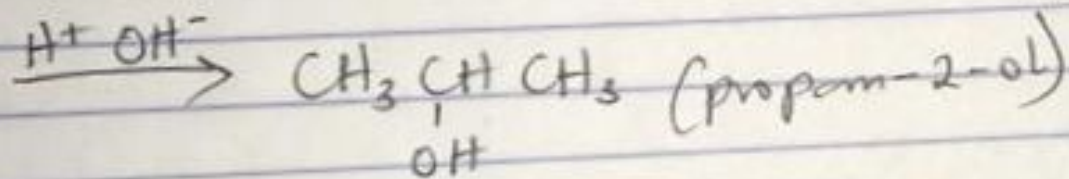 H⁺ OH⁻
→ CH₃ CH CH₃ (propan-2-ol)
OH